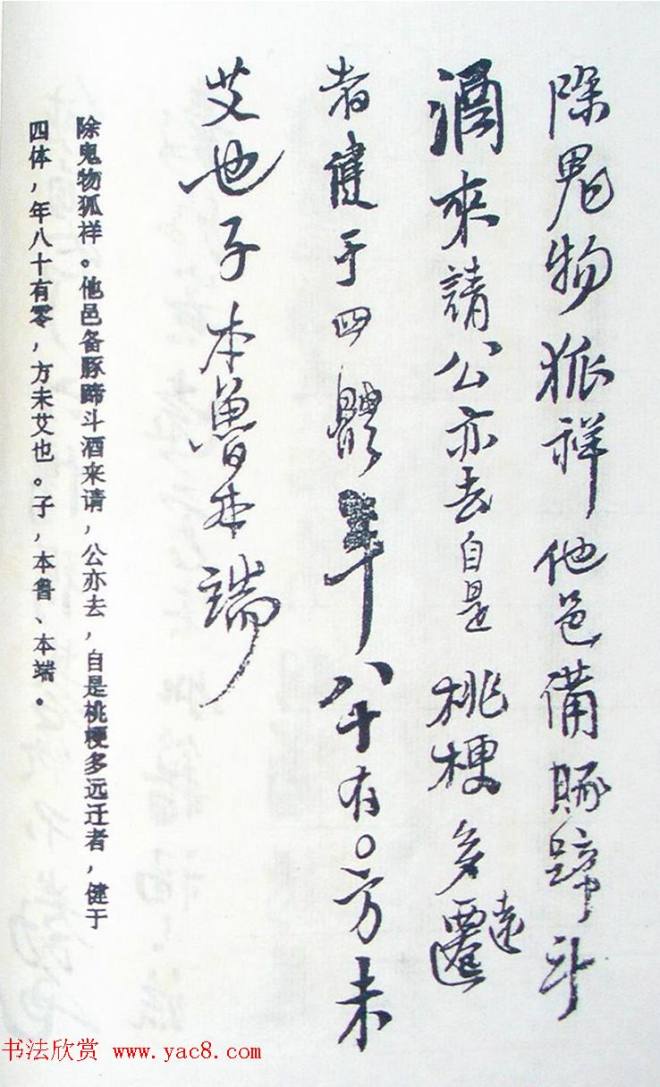 除鬼物狐祥他邑備豚蹄斗
酒來請公亦去自是桃梗多遠遷
者健于四體年八十有〇方未
艾也子本魯本端
除鬼物狐祥。他邑备豚蹄斗酒来请，公亦去，自是桃梗多远迁者，健于
四体，年八十有零，方未艾也。子，本鲁、本端。
书法欣赏 www.yac8.com